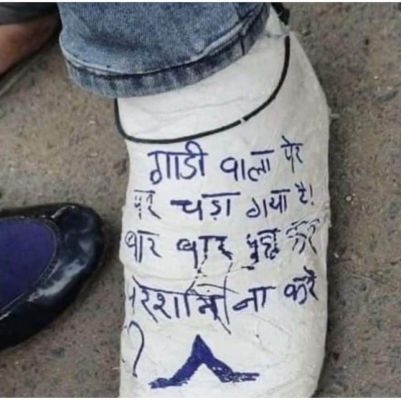 गाडी वाला पेर
पर चड़ा गया है!
बार बार पूछ कर
परेशान ना करे